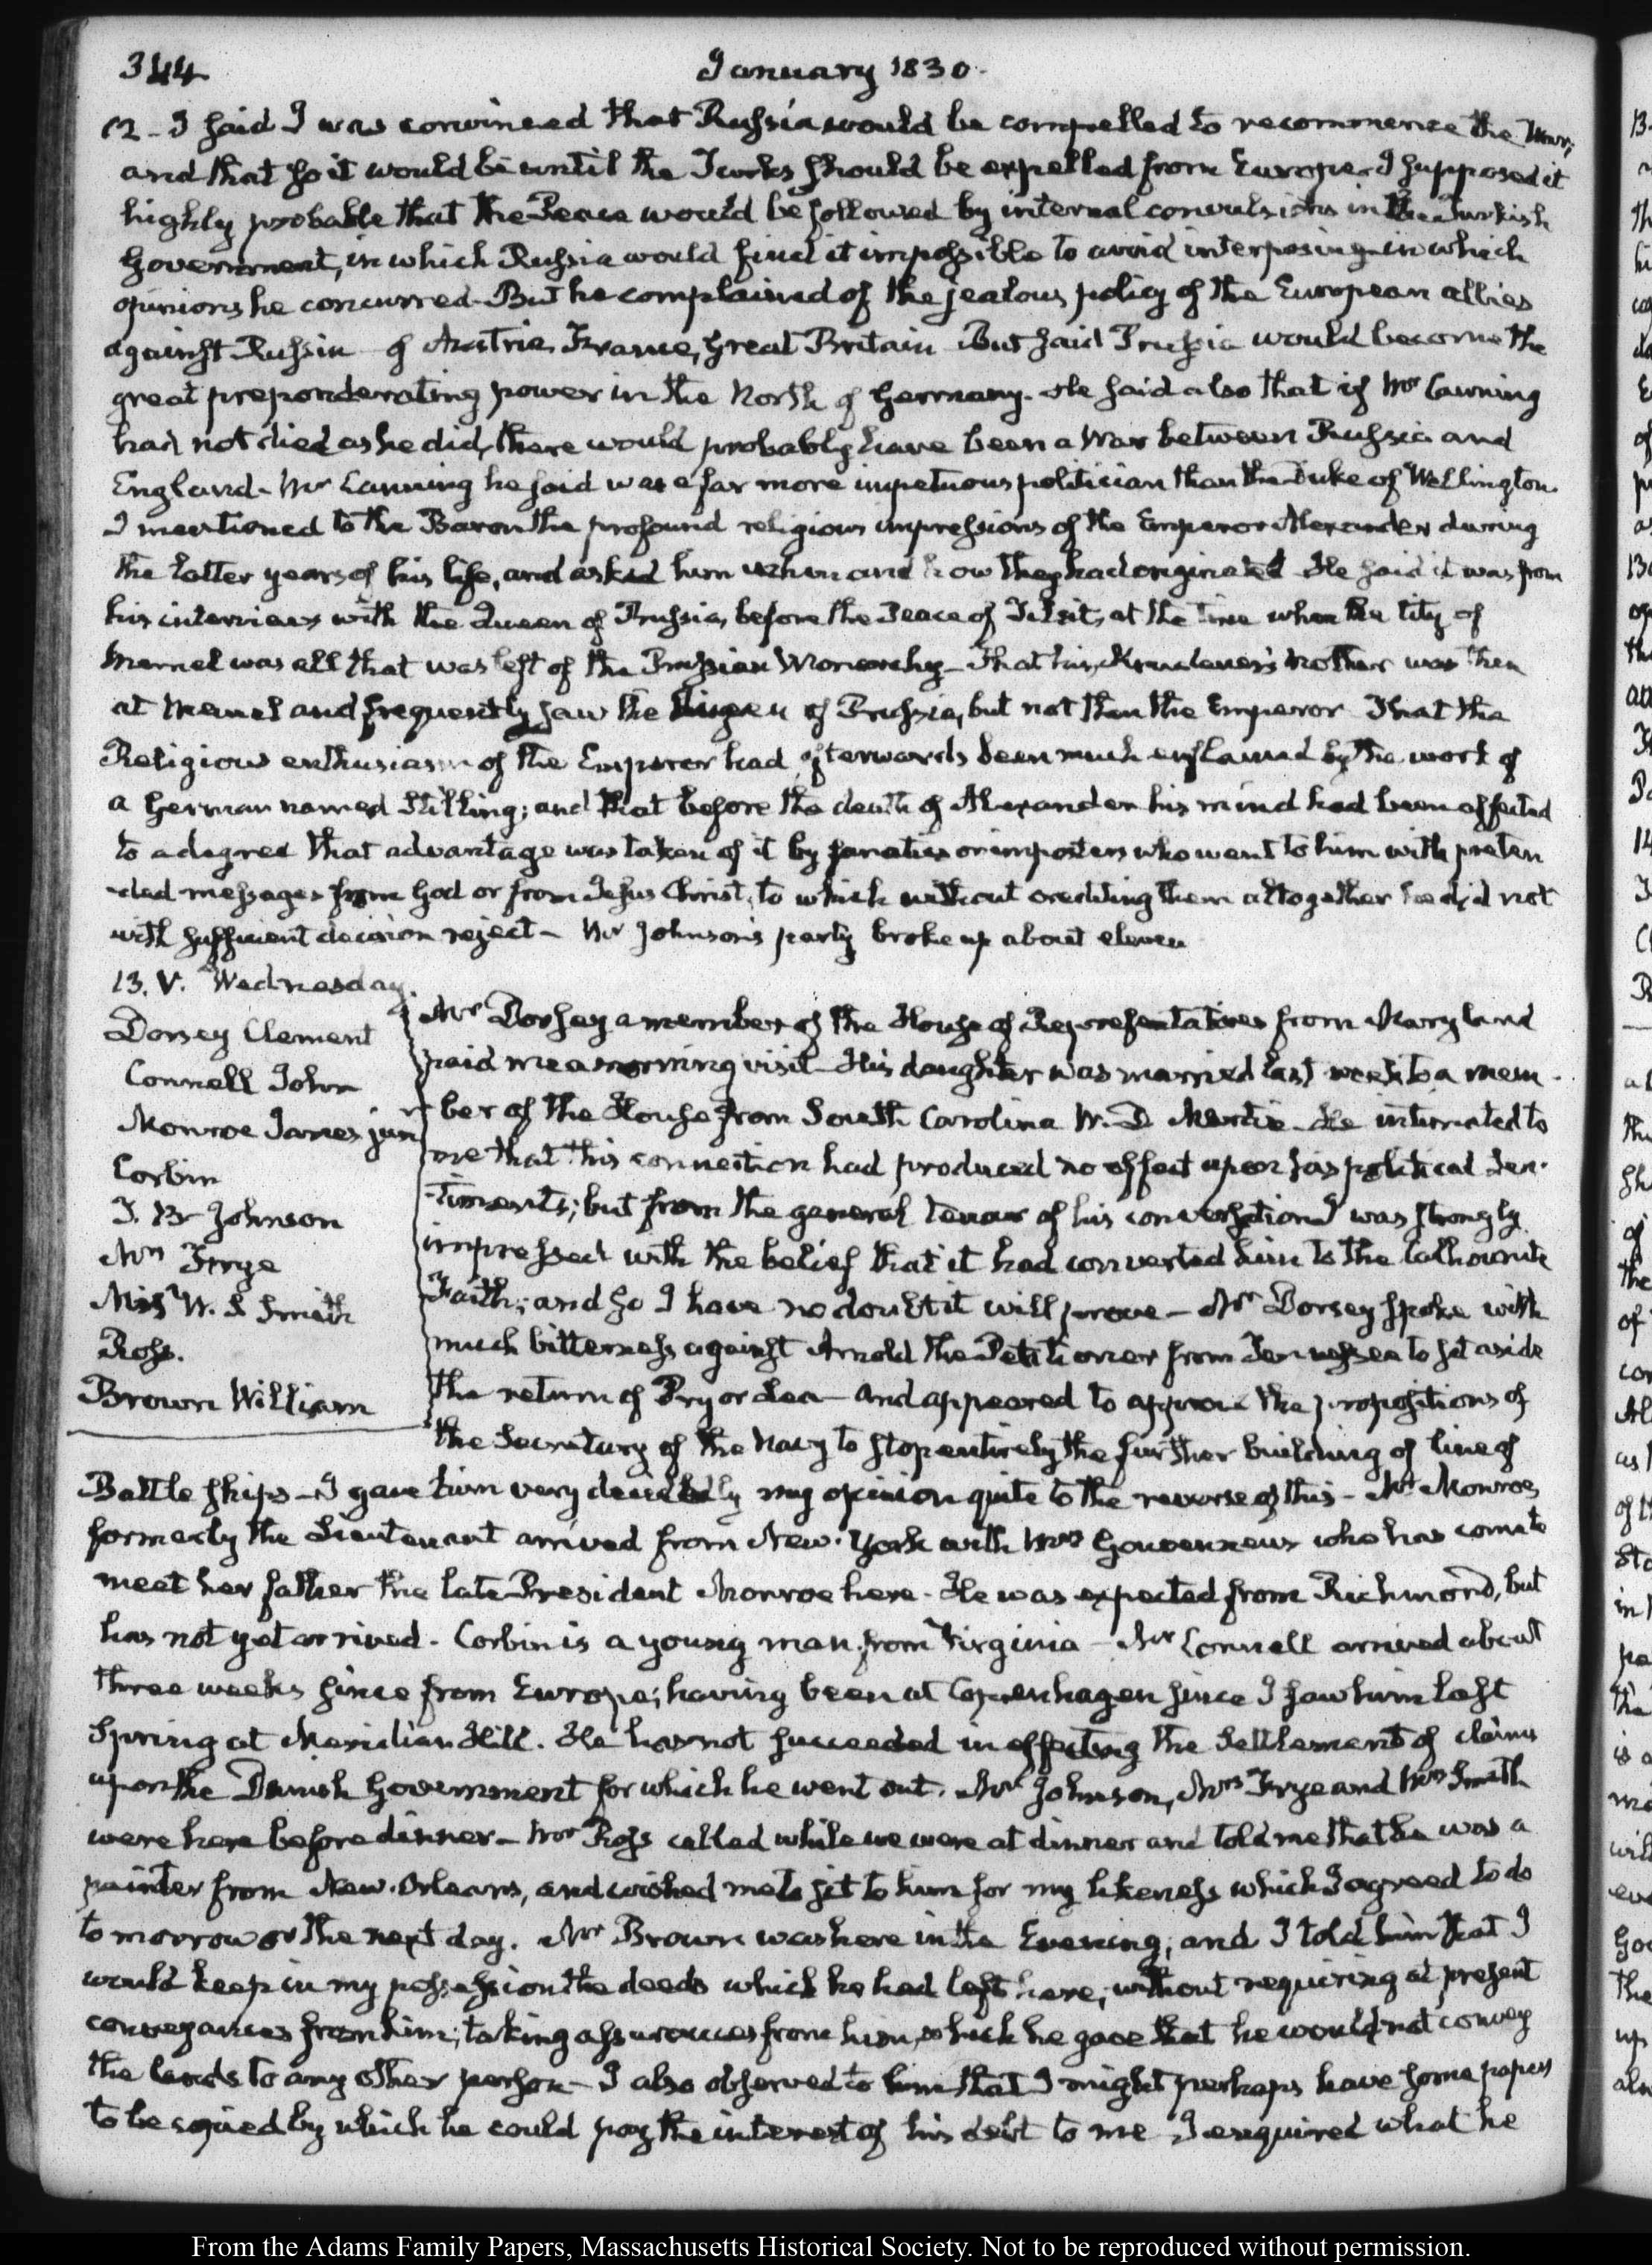 344
January 1830.
12 - I said I was convinced that Russia would be compelled to recommence the War;
and that so it would be until the Turks should be expelled from Europe. I supposed it
highly probable that the Peace would be followed by internal convulsions in the Turkish
Government, in which Russia would find it impossible to avoid interposing - in which
opinions he concurred - But he complained of the jealous policy of the European allies
against Russia - of Austria, France, Great Britain - But said Prussia would become the
great preponderating power in the North of Germany. He said also that if Mr Canning
had not died as he did, there would probably have been a War between Russia and
England - Mr Canning he said was a far more impetuous politician than the Duke of Wellington.
I mentioned to the Baron the profound religious impressions of the Emperor Alexander during
the latter years of his life, and asked him when and how they had originated - He said it was from
his interviews with the Queen of Prussia, before the Peace of Tilsit, at the time when the City of
Memel was all that was left of the Prussian Monarchy - That his, Krudener's Mother was then
at Memel and frequently saw the Queen of Prussia, but not then the Emperor - That the
Religious enthusiasm of the Emperor had afterwards been much enflamed by the work of
a German named Stilling; and that before the death of Alexander his mind had been affected
to a degree that advantage was taken of it by fanatics or imposters who went to him with preten
-ded messages from God or from Jesus Christ, to which without crediting them altogether he did not
with sufficient decision reject - Mr Johnson's party broke up about eleven
13. V. Wednesday.
Dorsey Clement
Connell John
Monroe James jun
Corbin
T. B. Johnson
Mrs Frye
W. S Smith
Ross.
Brown William
Mr Dorsey a member of the House of Representatives from Maryland
paid me a morning visit - His daughter was married last week to a mem-
ber of the House from South Carolina W. D Martin - He intimated to
me that this connection had produced no effect upon his political sen-
-timents; but from the general tenour of his conversation I was strongly
impressed with the belief that it had converted him to the Calhounite
Faith; and so I have no doubt it will prove - Mr Dorsey spoke with
much bitterness against Arnold the Petitioner from Tennessee to set aside
the return of Pryor Lea - and appeared to approve the propositions of
the Secretary of the Navy to stop entirely the further building of line of
Battle ships - I gave him very decidedly my opinion quite to the reverse of this - Mr Monroe
formerly the Lieutenant arrived from New-York with Mrs Gouverneur who has come to
meet her father the late President Monroe here - He was expected from Richmond, but
has not yet arrived - Corbin is a young man from Virginia - Mr Connell arrived about
three weeks since from Europe; having been at Copenhagen since I saw him last
Spring at Meridian Hill. He has not succeeded in effecting the Settlement of claims
upon the Danish Government for which he went out. Mr Johnson, Mrs Frye and Mrs Smith
were here before dinner - Mr Ross called while we were at dinner and told me that he was a
painter from New-Orleans, and wished me to sit to him for my likeness which I agreed to do
to morrow or the next day. Mr Brown was here in the Evening; and I told him that I
would keep in my possession the deeds which he had left here; without requiring at present
conveyances from him; taking assurances from him, which he gave that he would not convey
the lands to any other person - I also observed to him that I might perhaps have some papers
to be copied by which he could pay the interest of his debt to me - I enquired what he
From the Adams Family Papers, Massachusetts Historical Society. Not to be reproduced without permission.